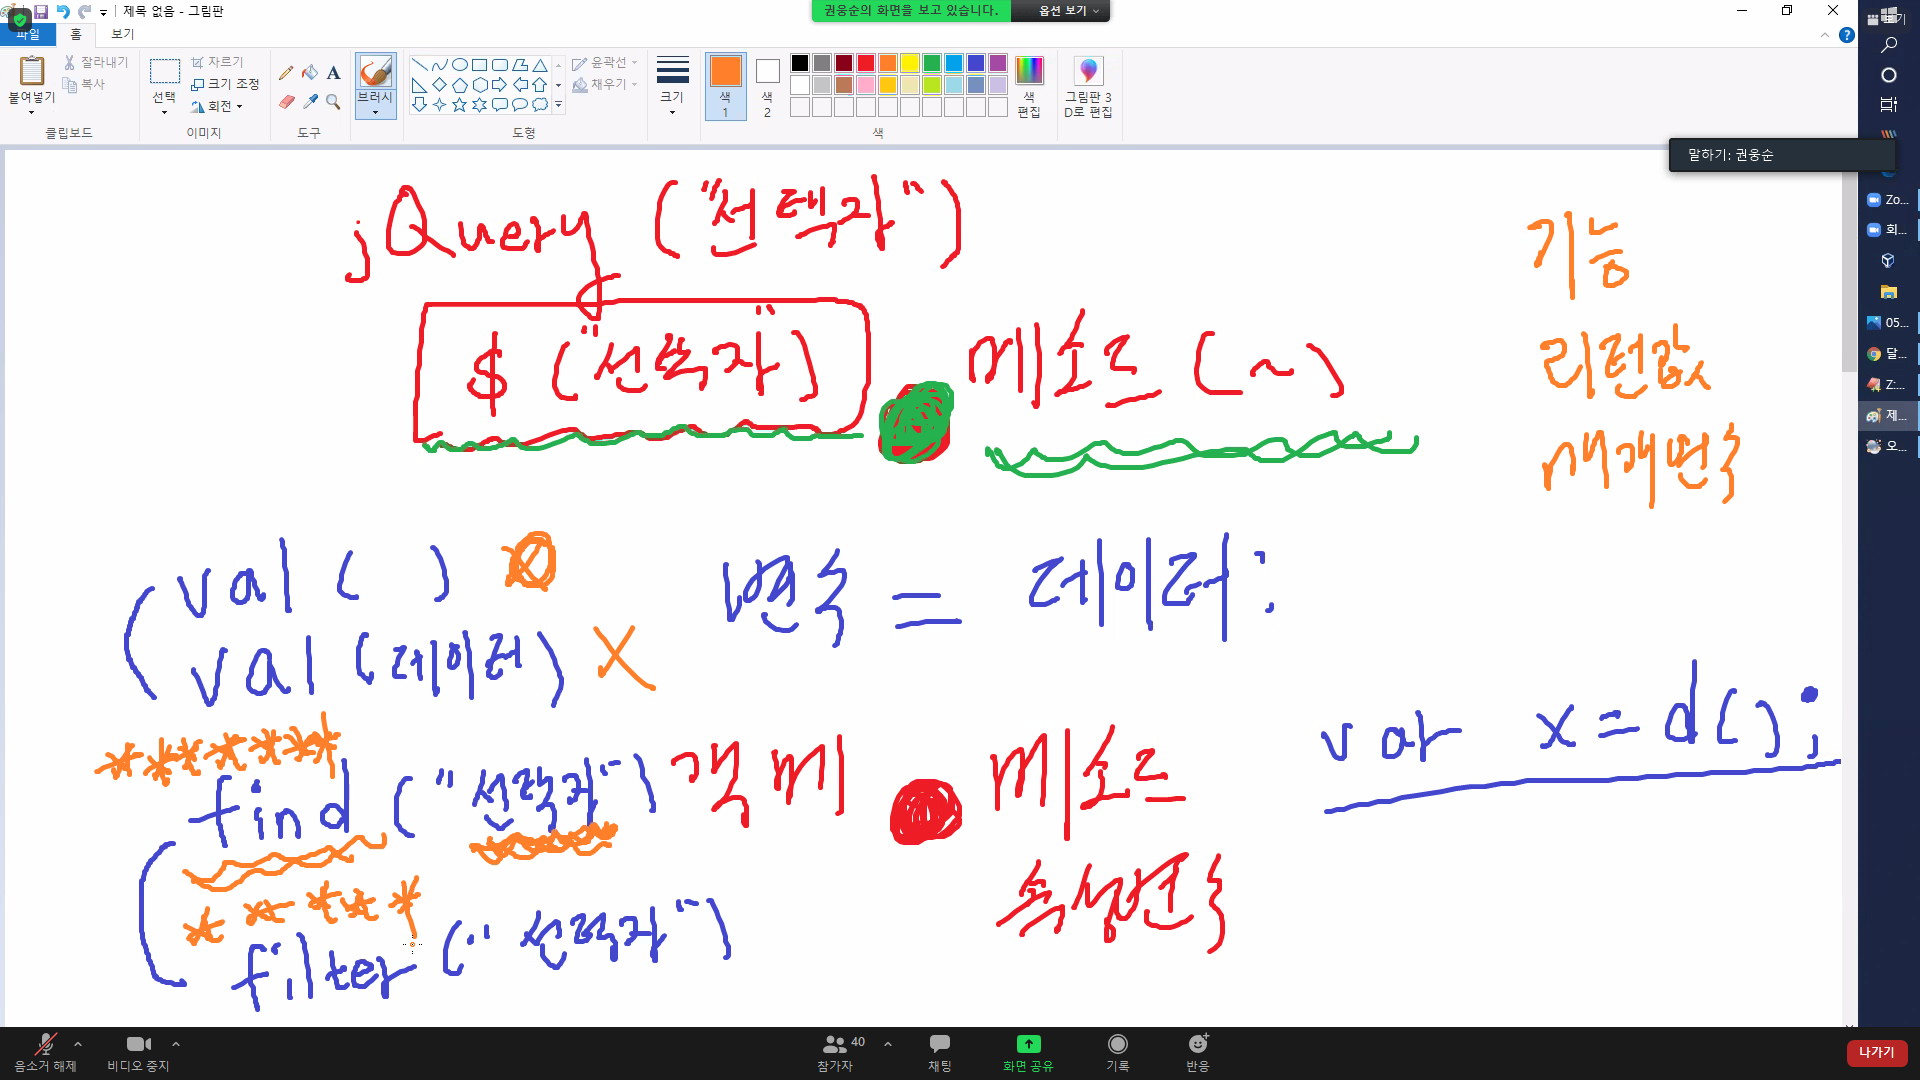 제목 없음 - 그림판
권웅순의 화면을 보고 있습니다.
옵션 보기
파일
홈
보기
붙여넣기
잘라내기
복사
클립보드
선택
자르기
크기 조정
회전
이미지
A
도구
브러시
윤곽선
채우기
도형
크기
색
1
색
2
색
편집
색
그림판 3
D로 편집
말하기: 권웅순
jQuery ("선택자")
$ ("선택자") 메소드 (~)
기능
리턴값
매개변수
val ( )
변수 = 데이터;
val (데이터) X
var x = d( );
****** *
find ("선택자")
객체 메소드
속성변수
* ** ** *
filter ("선택자")
Zo...
회...
05...
달...
Z:...
제...
오...
음소거 해제
비디오 중지
40
참가자
채팅
화면 공유
기록
반응
나가기